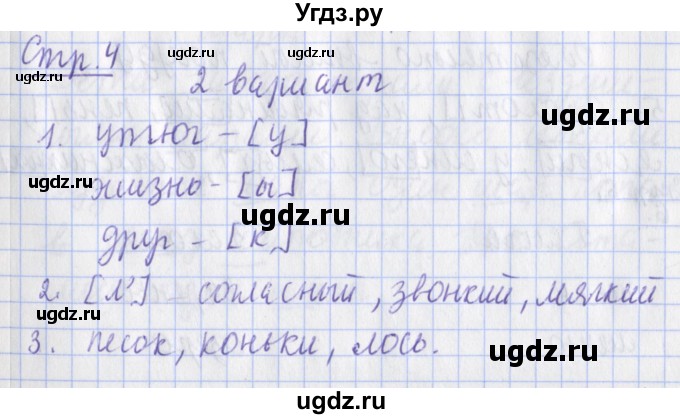 Угдз.ру
Стр. 4
ugdz.ru ugdz.ru ugdz.ru
2 вариант
ugdz.ru
1. утюг – [у]
ugdz.ru
жизнь – [ы]
ugdz.ru
друг – [к]
ugdz.ru
2. [л'] согласный, звонкий, мягкий
ugdz.ru
3. песок, коньки, лось.
ugdz.ru
ugdz.ru